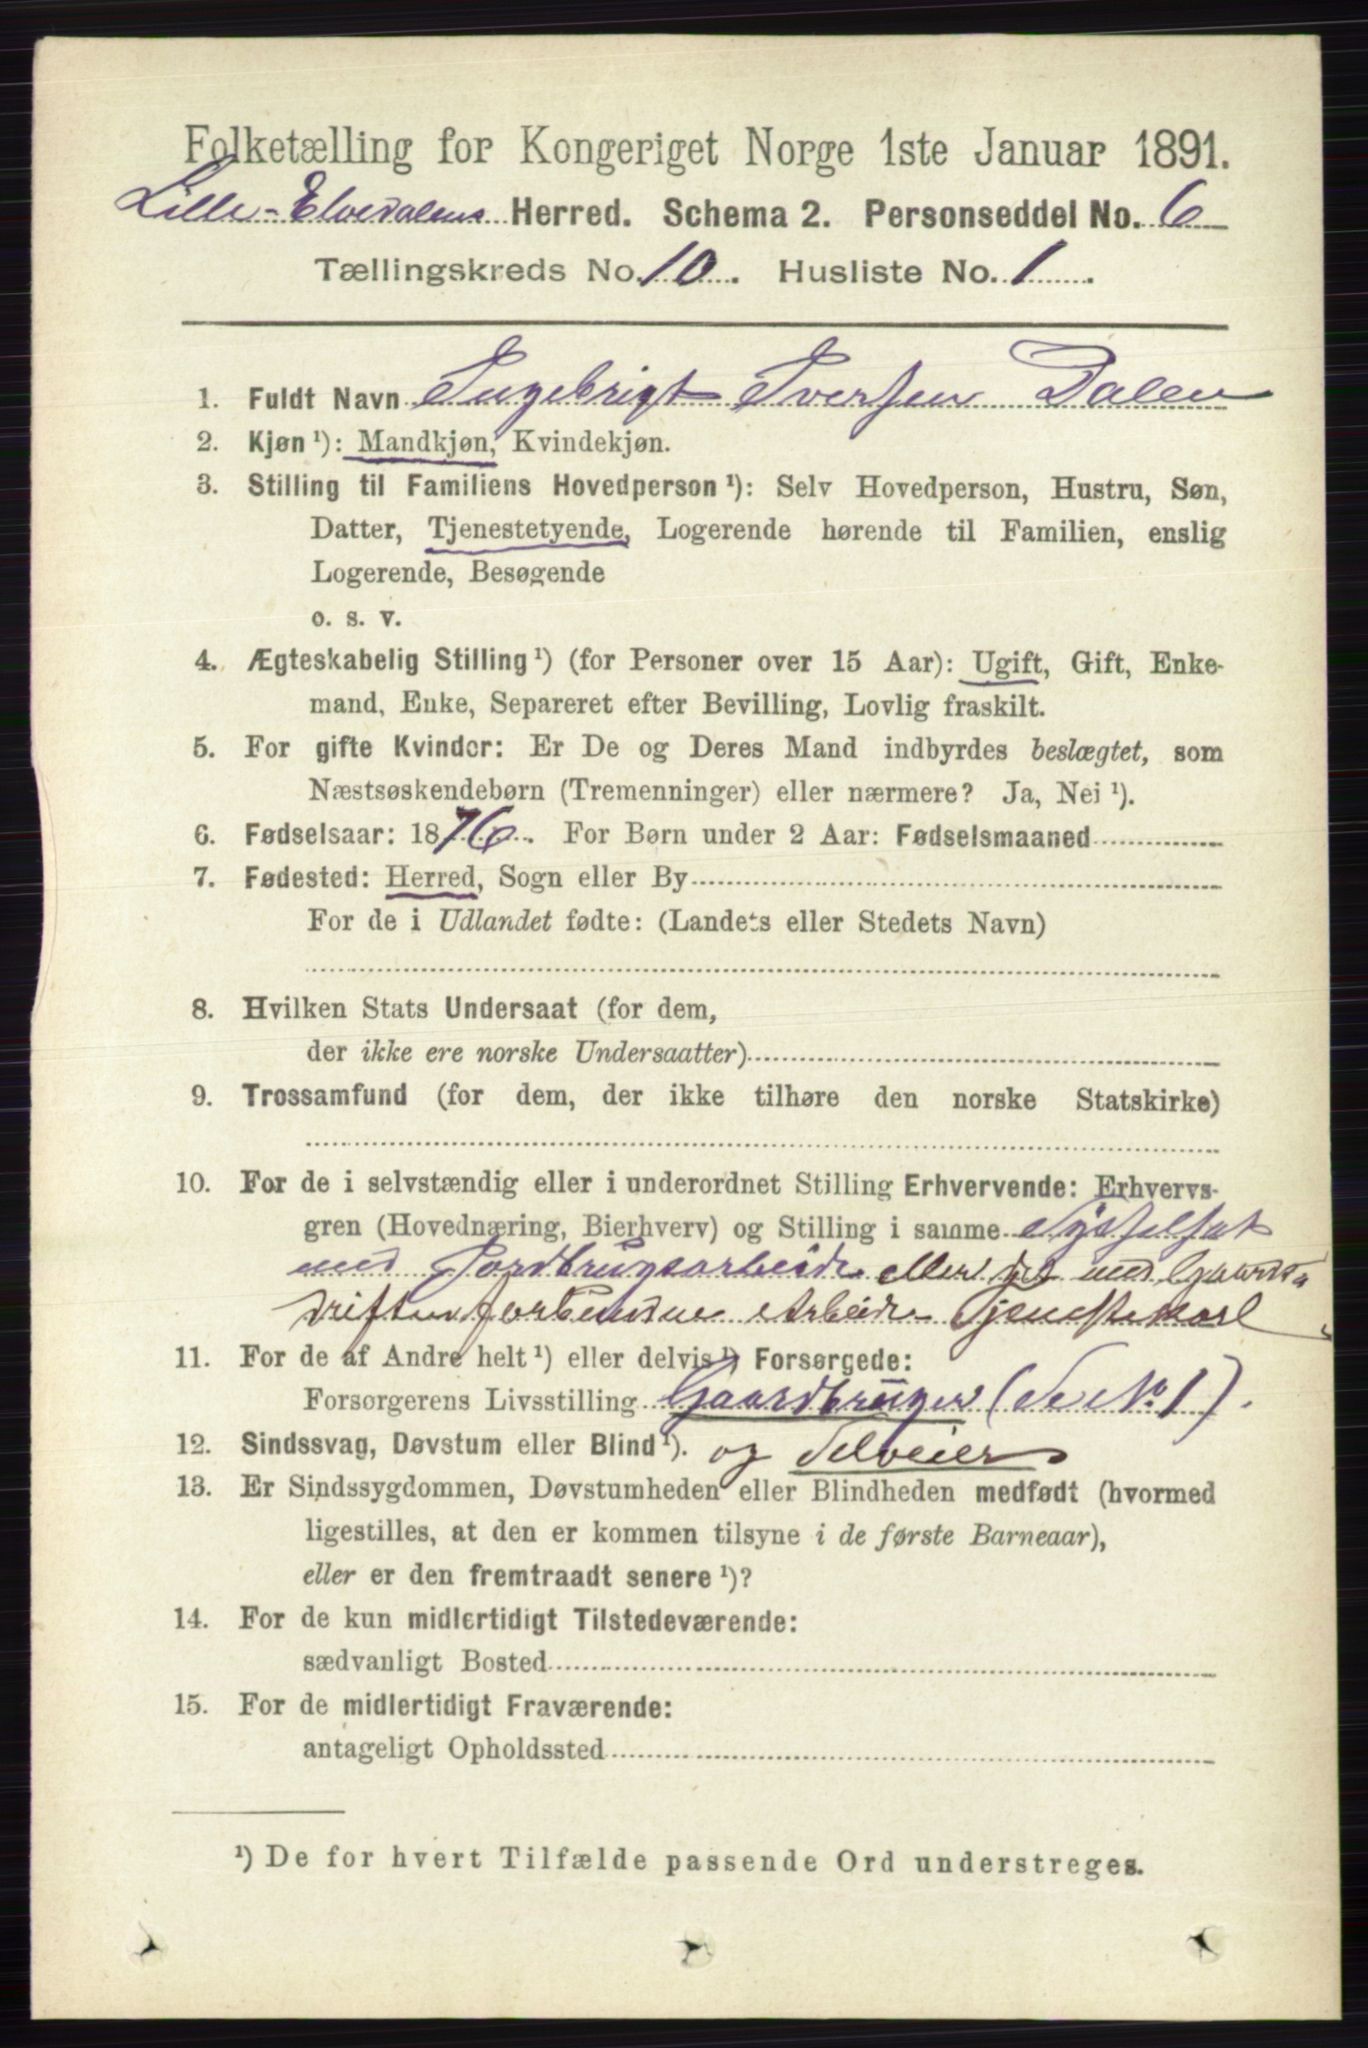 Folketælling for Kongeriget Norge 1ste Januar 1891.
Lille-Elvedalens Herred. Schema 2. Personseddel No. 6
Tællingskreds No. 10. Husliste No. 1.
1. Fuldt Navn Ingebrigt Iversen Dalen
2. Kjøn ¹): Mandkjøn, Kvindekjøn.
3. Stilling til Familiens Hovedperson ¹): Selv Hovedperson, Hustru, Søn,
Datter, Tjenestetyende, Logerende hørende til Familien, enslig
Logerende, Besøgende
o. s. v.
4. Ægteskabelig Stilling ¹) (for Personer over 15 Aar): Ugift, Gift, Enke-
mand, Enke, Separeret efter Bevilling, Lovlig fraskilt.
5. For gifte Kvinder: Er De og Deres Mand indbyrdes beslægtet, som
Næstsøskendebørn (Tremenninger) eller nærmere? Ja, Nei ¹).
6. Fødselsaar: 1876. For Børn under 2 Aar: Fødselsmaaned
7. Fødested: Herred, Sogn eller By
For de i Udlandet fødte: (Landets eller Stedets Navn)
8. Hvilken Stats Undersaat (for dem,
der ikke ere norske Undersaatter)
9. Trossamfund (for dem, der ikke tilhøre den norske Statskirke)
10. For de i selvstændig eller i underordnet Stilling Erhvervende: Erhvervs-
gren (Hovednæring, Bierhverv) og Stilling i samme Sysselsat
med Jordbrugsarbeide eller det med Gaards-
driften forbundne Arbeide Tjenestekarl
11. For de af Andre helt ¹) eller delvis ¹) Forsørgede:
Forsørgerens Livsstilling Gaardbruger (Se No 1).
12. Sindssvag, Døvstum eller Blind ¹). og Selveier
13. Er Sindssygdommen, Døvstumheden eller Blindheden medfødt (hvormed
ligestilles, at den er kommen tilsyne i de første Barneaar),
eller er den fremtraadt senere ¹)?
14. For de kun midlertidigt Tilstedeværende:
sædvanligt Bosted
15. For de midlertidigt Fraværende:
antageligt Opholdssted
¹) De for hvert Tilfælde passende Ord understreges.